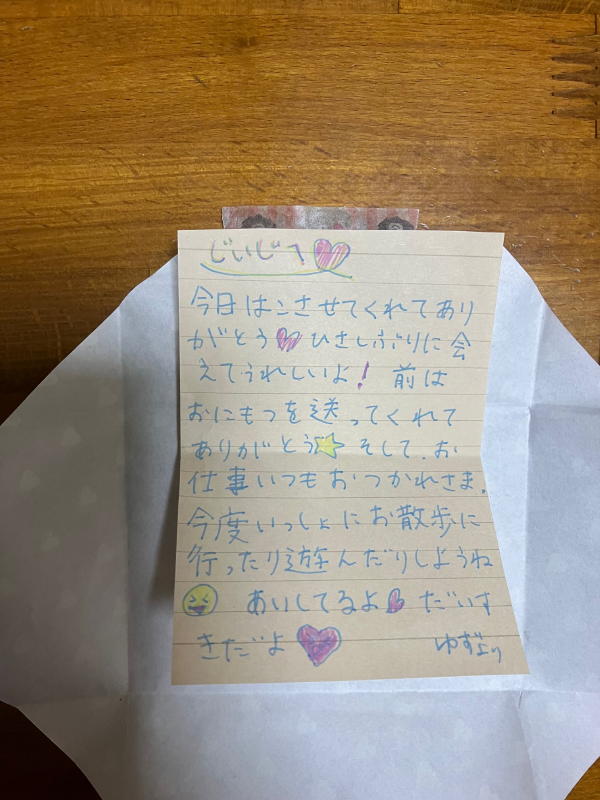 じいじへ
今日はこさせてくれてあり
がとう ひさしぶりに会
えてうれしいよ! 前は
おにもつを送ってくれて
ありがとう そして、お
仕事いつもおつかれさま。
今度いっしょにお散歩に
行ったり遊んだりしようね
あいしてるよ だいす
きだよ ゆずより